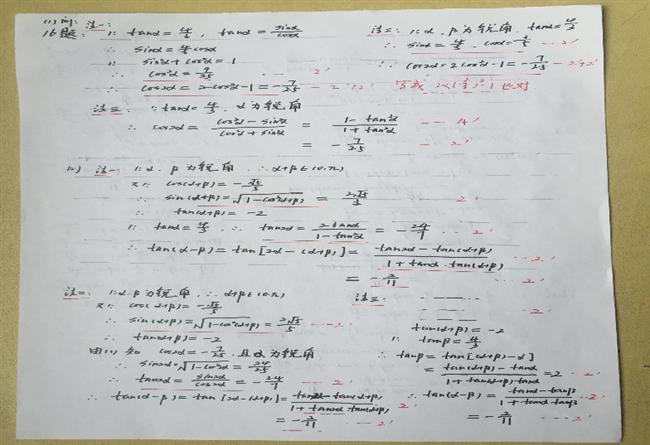 (1)问:
16题: 法一: ∵ tanα = 4/3, tanα = sinα/cosα
∴ sinα = 4/3 cosα
∵ sin²α + cos²α = 1
∴ cos²α = 9/25 ---- 2'
∴ cos2α = 2cos²α - 1 = -7/25 -- 2'
法二: ∵ α、β为锐角, tanα = 4/3
∴ sinα = 4/5, cosα = 3/5 --- 2'
∴ cos2α = 2cos²α - 1 = -7/25 --- 2'+2'
写成 2×(3/5)²-1 也对
法三: ∵ tanα = 4/3, α为锐角
∴ cos2α = (cos²α - sin²α)/(cos²α + sin²α) = (1 - tan²α)/(1 + tan²α) --- 4'
= -7/25 --- 2'
(2) 法一: ∵ α、β为锐角 ∴ α+β∈(0,π)
又∵ cos(α+β) = -√5/5
∴ sin(α+β) = √(1-cos²(α+β)) = 2√5/5 2'
∴ tan(α+β) = -2
∵ tanα = 4/3, ∴ tan2α = 2tanα/(1-tan²α) = -24/7 --- 2'
∴ tan(α-β) = tan[2α-(α+β)] = (tan2α - tan(α+β))/(1 + tan2α·tan(α+β)) --- 2'
= -2/11 --- 2'
法二: ∵ α、β为锐角, ∴ α+β∈(0,π)
又∵ cos(α+β) = -√5/5
∴ sin(α+β) = √(1-cos²(α+β)) = 2√5/5 --- 2'
∴ tan(α+β) = -2
由(1)知 cos2α = -7/25, 且α为锐角
∴ sin2α = √(1-cos²2α) = 24/25
∴ tan2α = sin2α/cos2α = -24/7 --- 2'
∴ tan(α-β) = tan[2α-(α+β)] = (tan2α - tan(α+β))/(1 + tan2α tan(α+β)) 2'
= -2/11 2'
法三: 
2'
tan(α+β) = -2
∴ tanβ = tan[(α+β)-α]
= (tan(α+β) - tanα)/(1 + tan(α+β)·tanα) = 2 -- 2'
∴ tan(α-β) = (tanα - tanβ)/(1 + tanα·tanβ) 2'
= -2/11 --- 2'